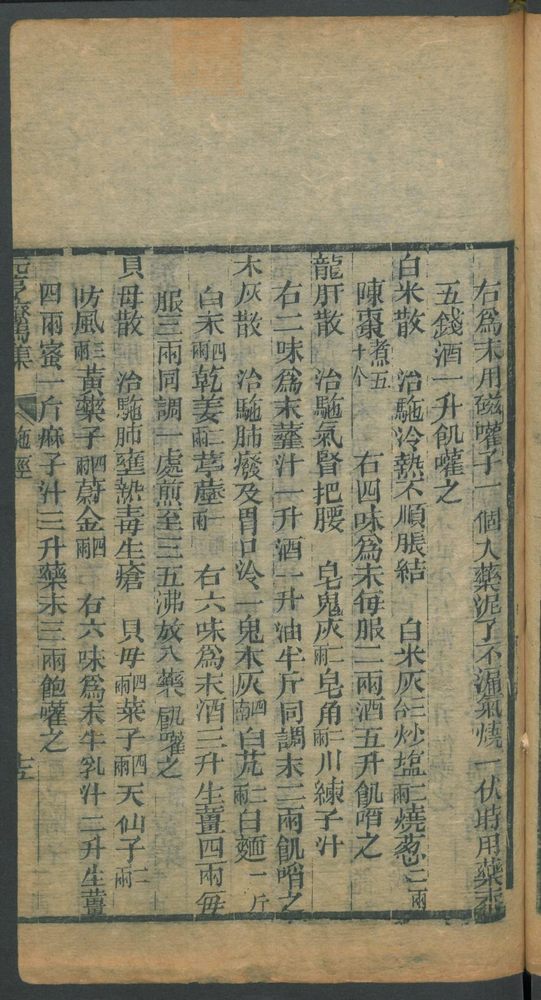 右為末用磁嚾子一個入藥泥了不漏氣燒一伏時用藥末
五錢酒一升飢嚾之
白米散　治駞冷熱不順脹結　白米灰 炒塩二兩燒葱二兩
陳棗煮五十个　右四味為末每服二兩酒五升飢啗之
龍肝散　治駞氣腎把腰　皂鬼灰二兩皂角二兩川練子汁
右二味為末薤汁一升酒一升油半斤同調末二兩飢啗之
木灰散　治駞肺癈及胃口冷一鬼木灰四兩白芃三兩白麵一斤
白米四兩乾姜二兩葶藶一兩　右六味為末酒三升生薑四兩每
服三兩同調一處煎至三五沸放入藥飢嚾之
貝母散　治駞肺癰熱毒生瘡　貝母四兩菜子四兩天仙子二兩
防風三兩黃藥子四兩蔚金四兩　右六味為末牛乳汁二升生薑
四兩蜜一斤麻子汁三升藥末三兩飽嚾之
元亨療馬集　駞經　十五